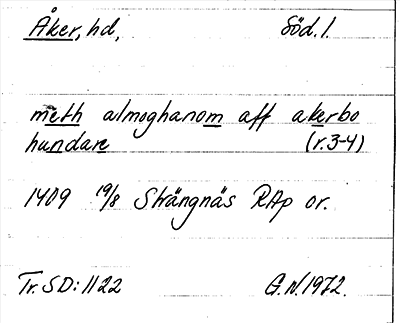 Åker, hd, Söd. l.
meth almoghanom aff akerbo
hundare (r.3-4)
1409 19/8 Strängnäs RAp or.
Tr. SD: 1122 G.N. 1972.